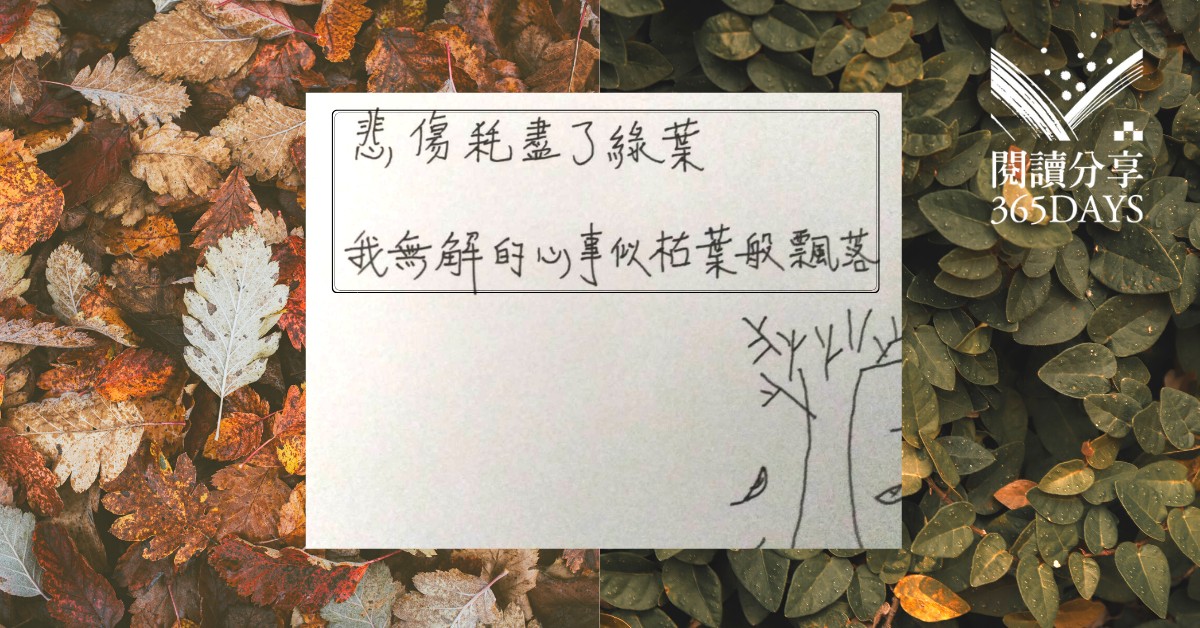 悲傷耗盡了綠葉
我無解的心事似枯葉般飄落
閱讀分享
365DAYS